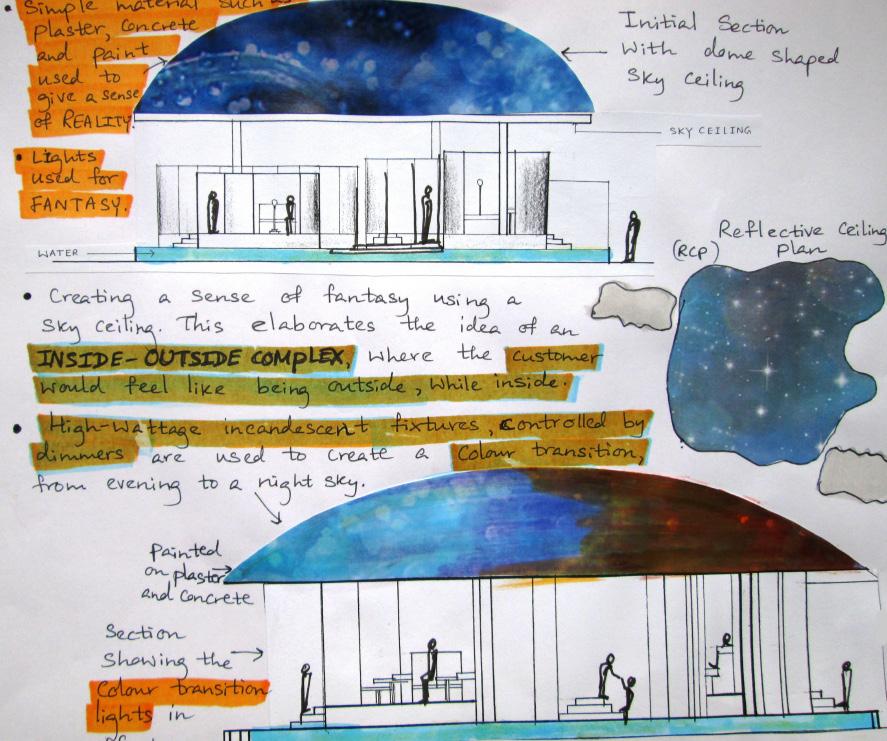 • Simple material such as
plaster, concrete
and paint
used to
give a sense
of REALITY.
• Lights
used for
FANTASY.
Initial Section
with dome shaped
Sky Ceiling
SKY CEILING
WATER
Reflective Ceiling
(RCP) Plan
• Creating a sense of fantasy using a
sky ceiling. This elaborates the idea of an
INSIDE-OUTSIDE COMPLEX, where the customer
would feel like being outside, while inside.
• High-Wattage incandescent fixtures, controlled by
dimmers are used to create a Colour transition,
from evening to a night sky.
Painted
on plaster
and concrete
Section
Showing the
Colour transition
lights in